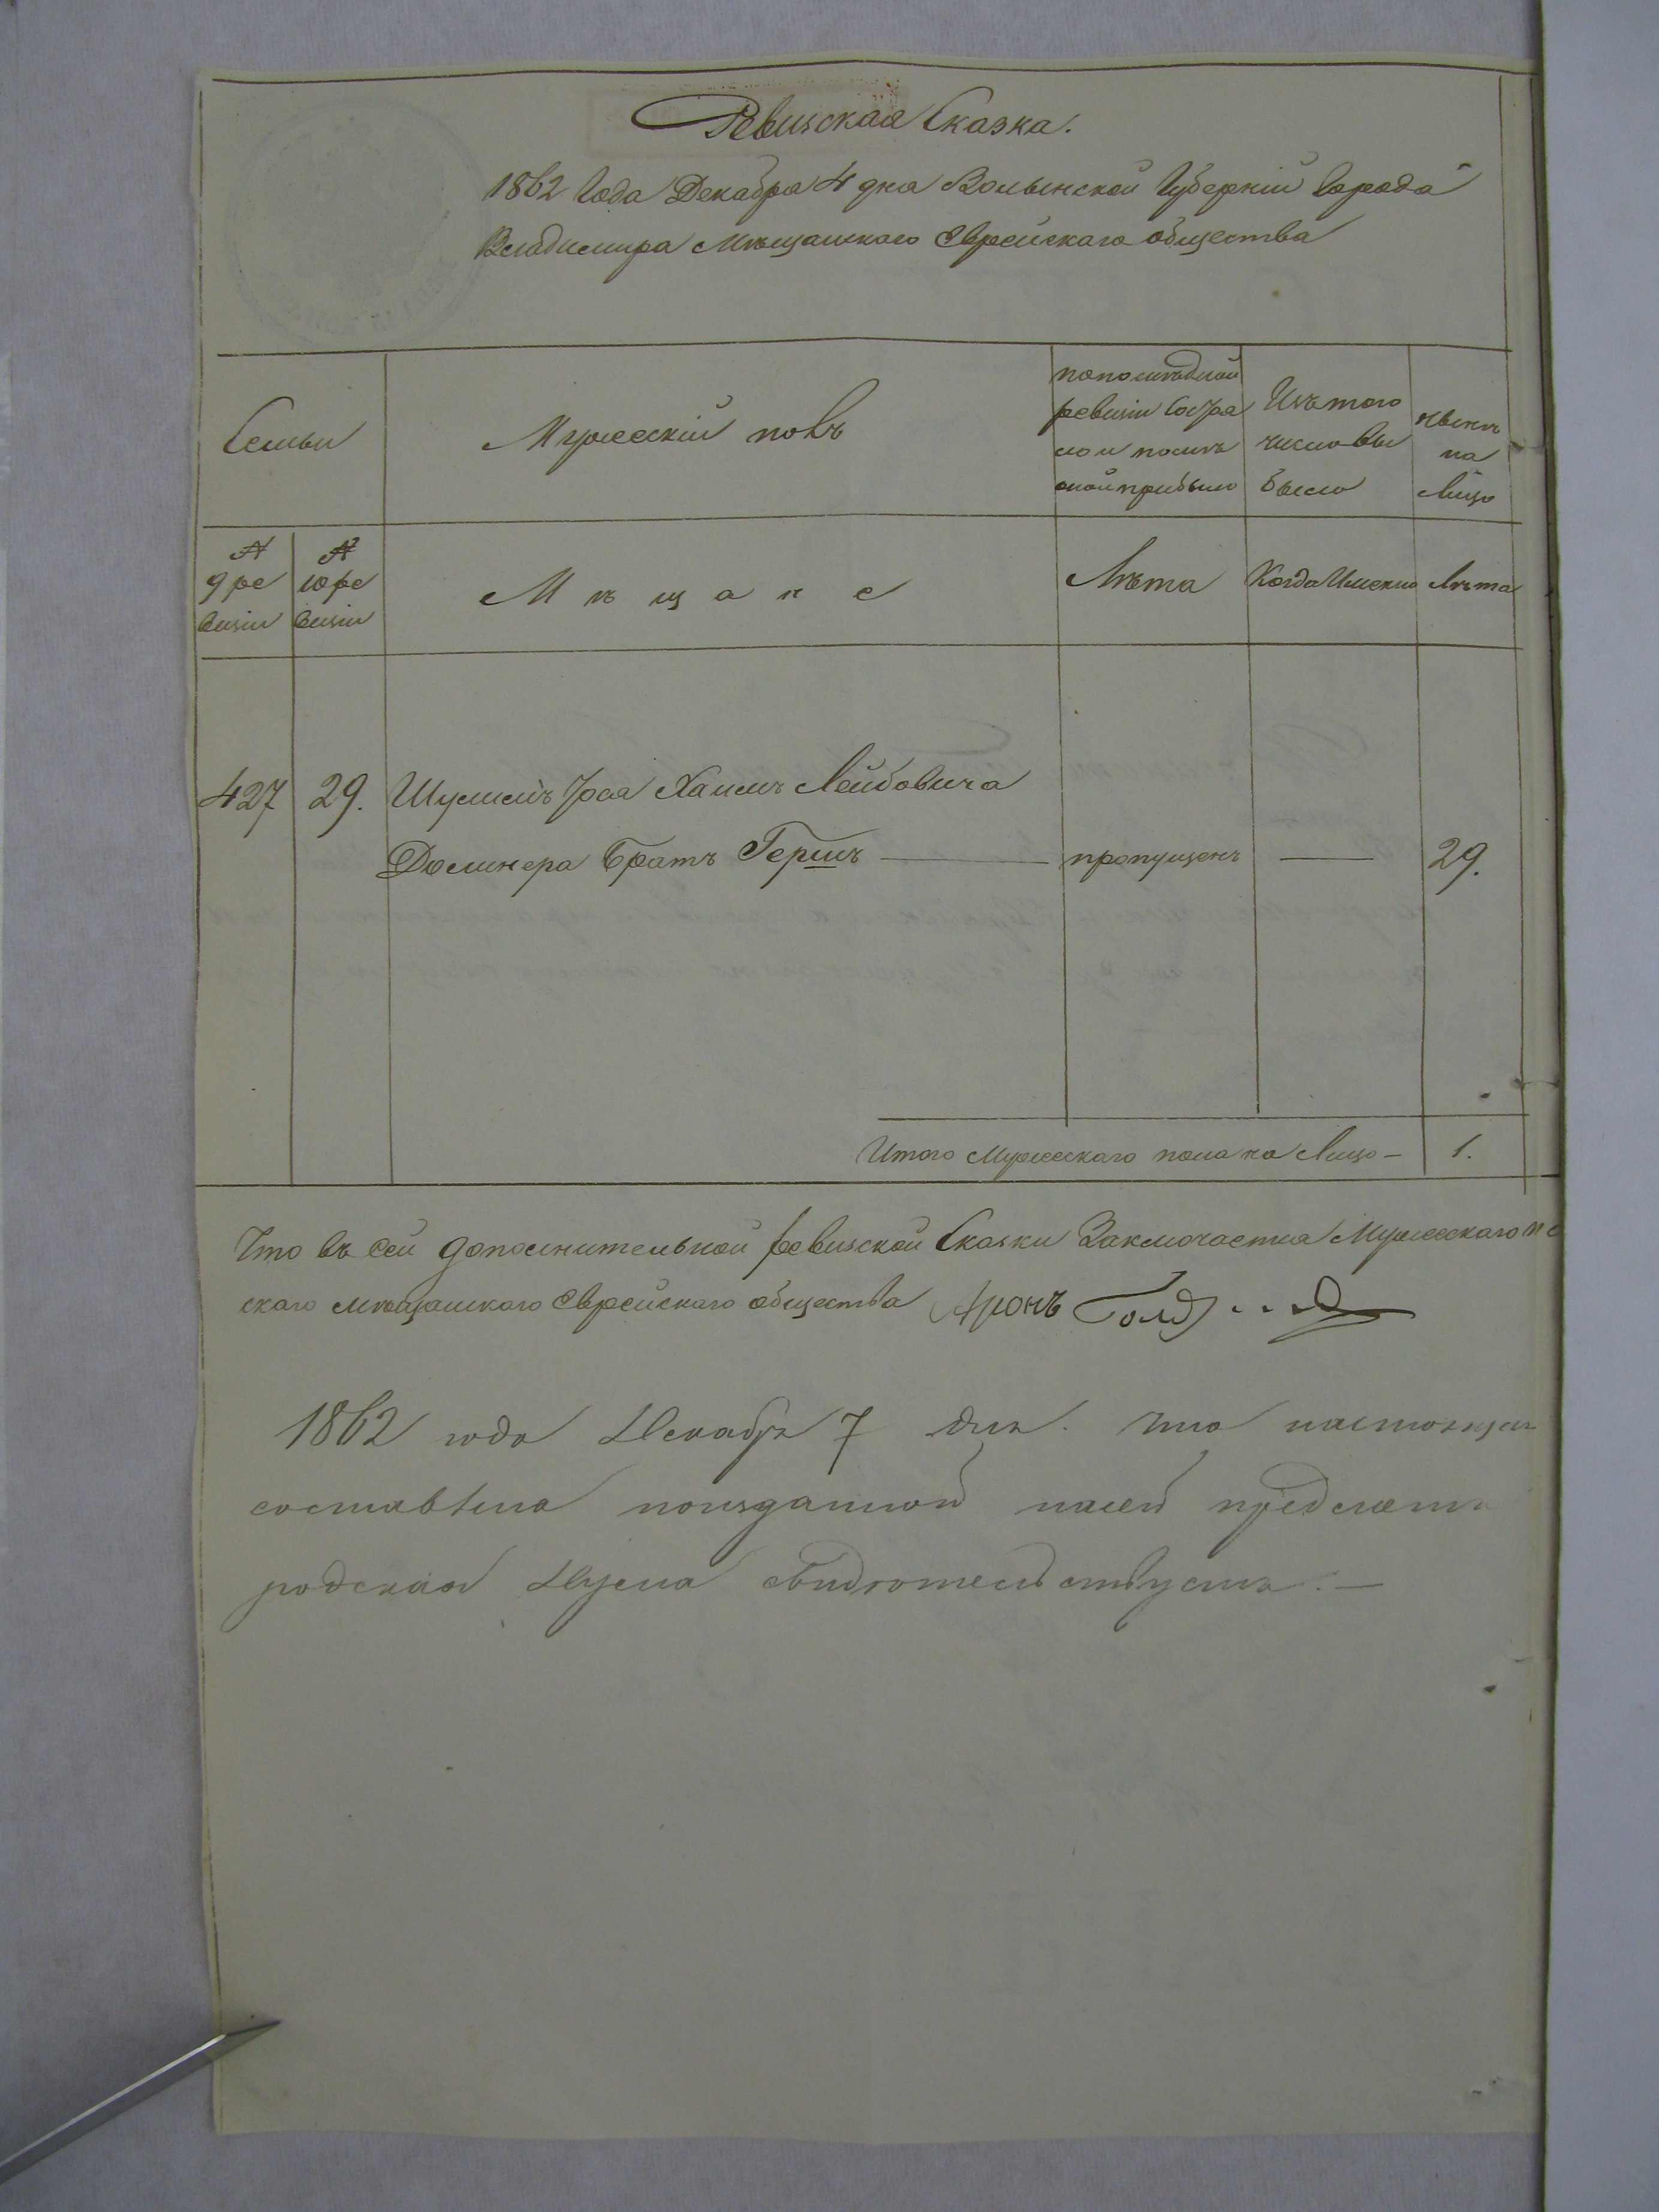 Ревизская Сказка.
1862 Года Декабря 4 дня Волынской Губерніи Города
Владимира Мѣщанского Еврейского общества
Семьи
Мужескій полъ
по последной
ревизіи Состоя
ло и послѣ
оной прибыло
Изъ того
числа вы
было
Нынѣ
на
Лицо
№
9 ре
визіи
№
10 ре
визіи
Мѣщане
Лѣта
Когда Именно
Лѣта
427
29.
Хаимъ Лейбовича
Долинера братъ Гершъ
пропущенъ
29.
Итого Мужескаго пола на Лицо -
1.
Что въ сей дополнительной ревизской Сказки Заключается Мужескаго по
скаго мѣщанского Еврейскаго общества Аронъ
1862 года Декабря 7 дня. Что настоящая
составлена
родская Дума свидѣтельствуетъ. —